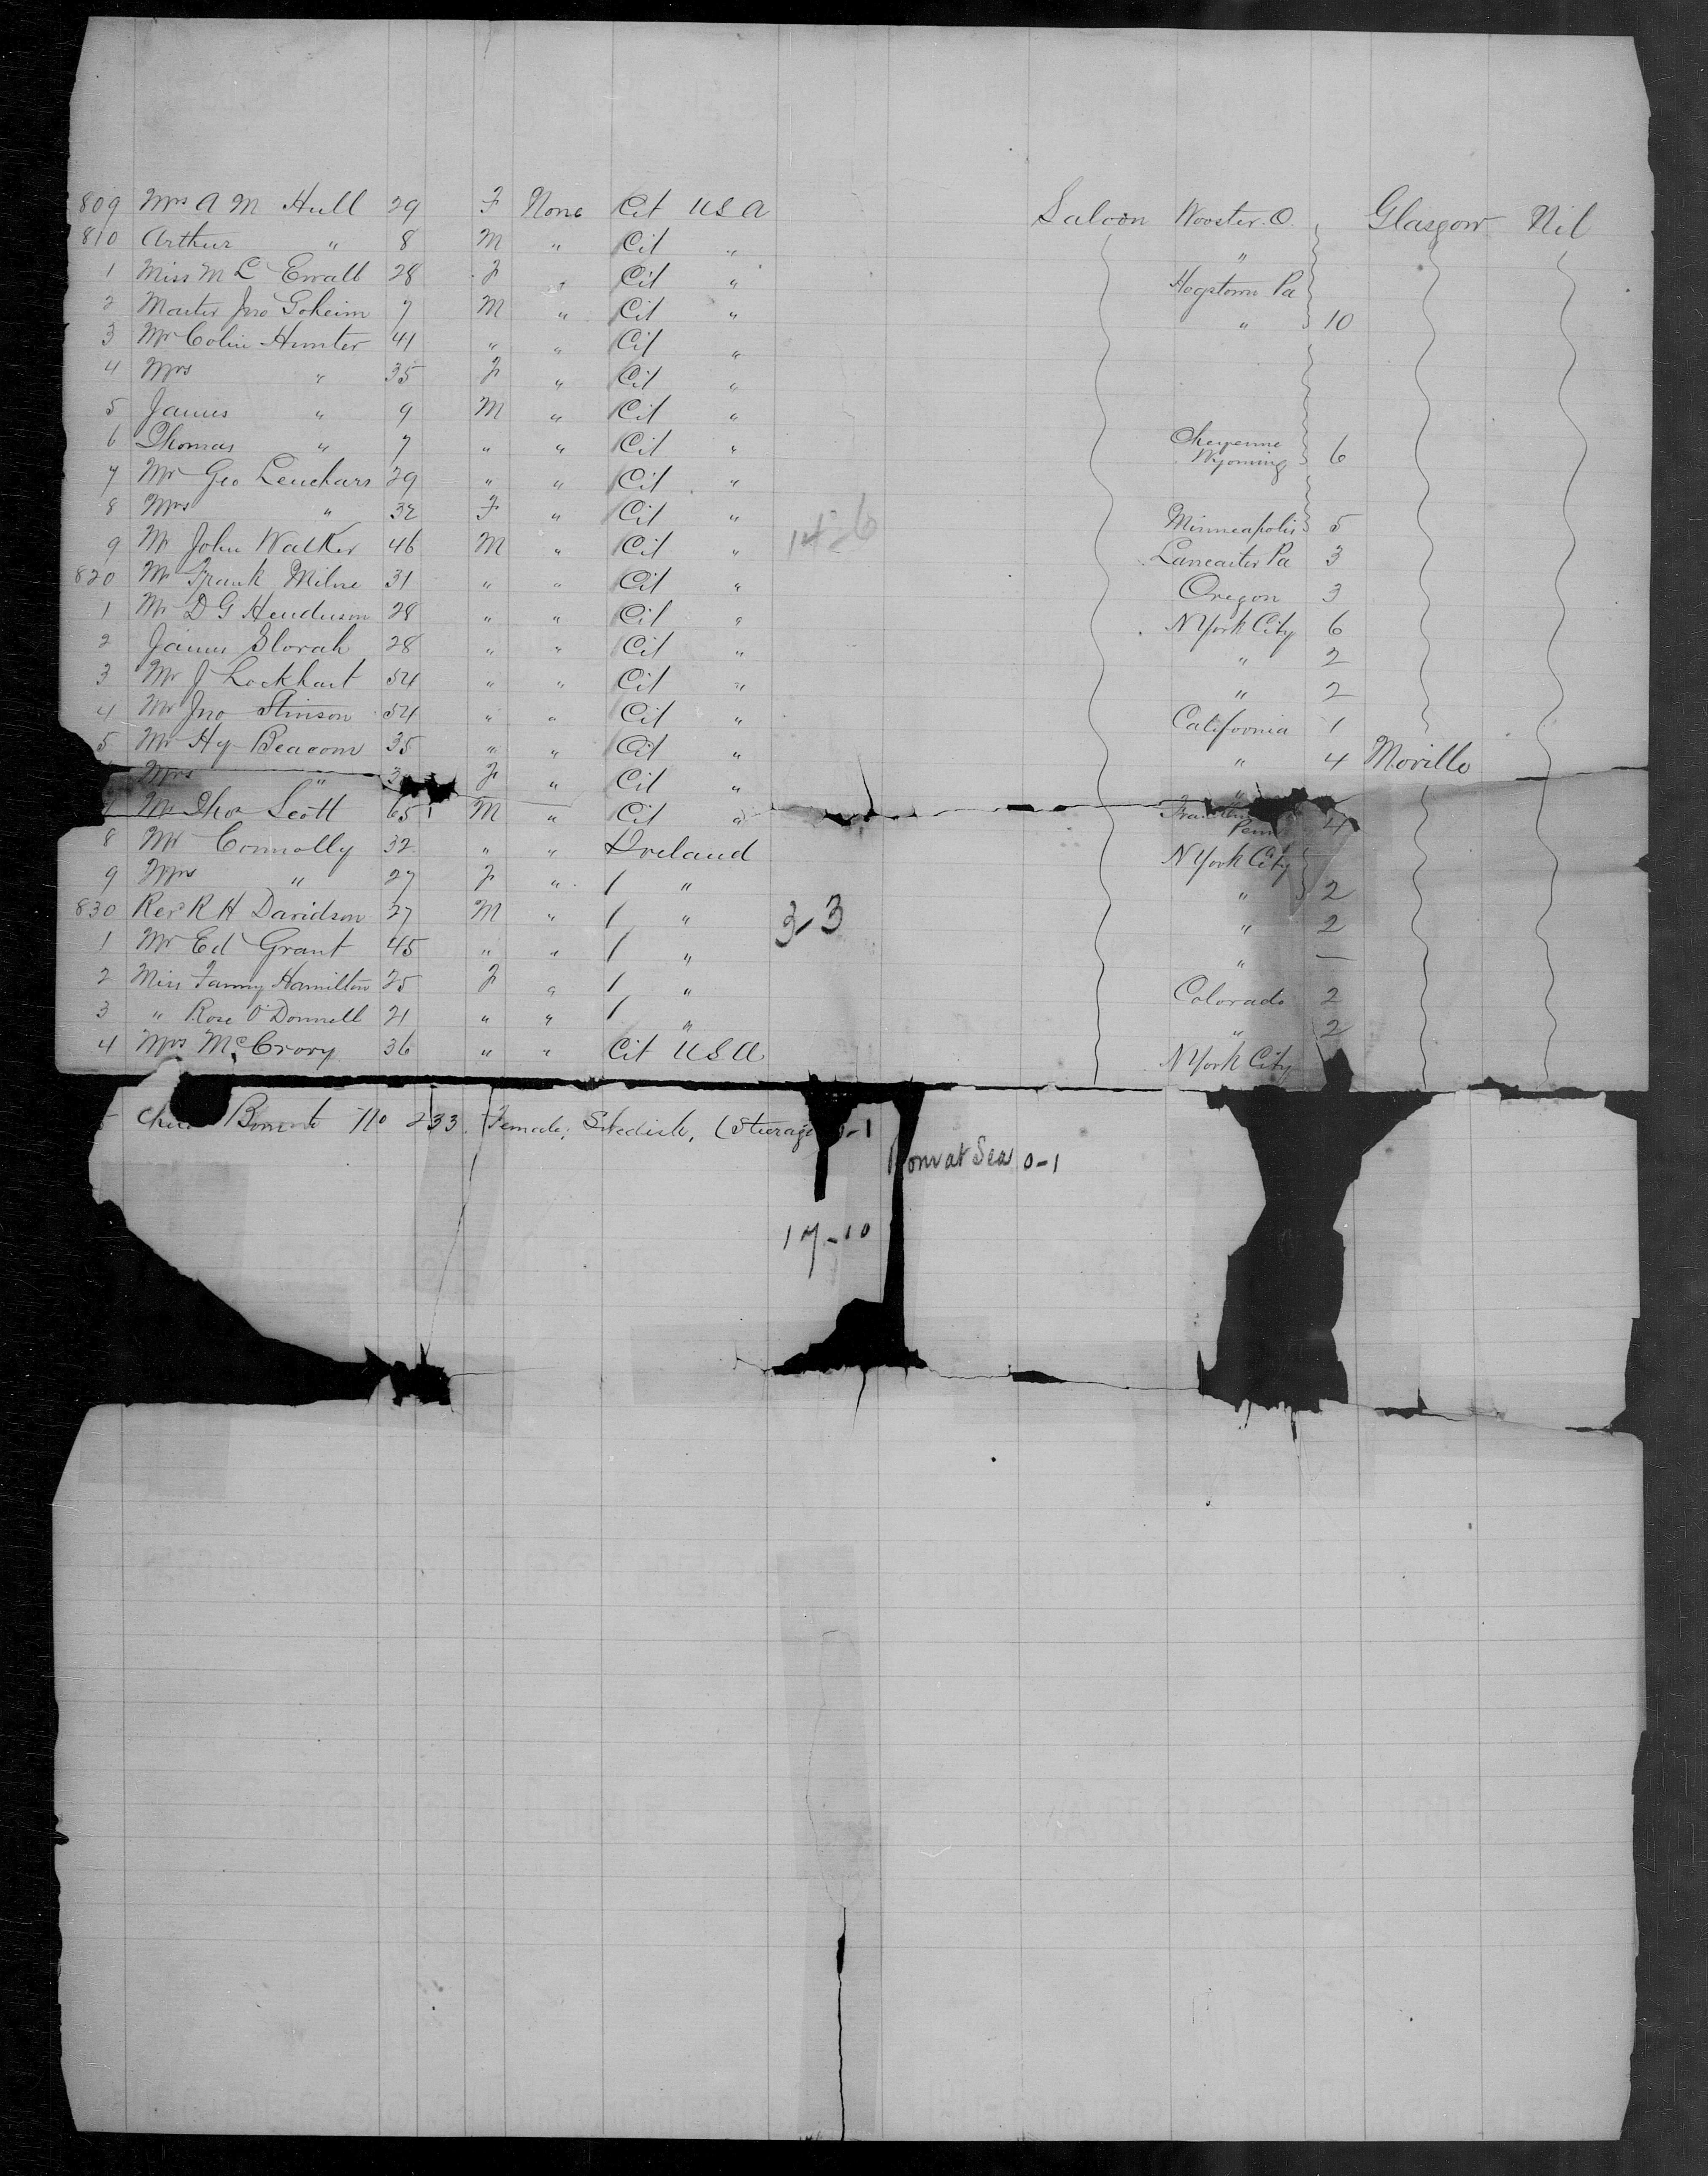 809 Mrs A M Hull 29 F None Cit USA Saloon Wooster. O. Glasgow Nil
810 Arthur " 8 M " Cit " "
1 Miss M L Ewalt 28 F " Cit " Hogstown Pa
2 Master Jno Goheim 7 M " Cit " " 10
3 Mr Colin Hunter 41 " " Cit "
4 Mrs " 35 F " Cit "
5 James " 9 M " Cit "
6 Thomas " 7 " " Cit " Cheyenne Wyoming 6
7 Mr Geo Leuchars 29 " " Cit "
8 Mrs " 32 F " Cit " Minneapolis 5
9 Mr John Walker 46 M " Cit " 14-6 Lancaster Pa 3
820 Mr Frank Milne 31 " " Cit " Oregon 3
1 Mr D G Henderson 28 " " Cit " N York City 6
2 James Slorah 28 " " Cit " " 2
3 Mr J Lockhart 54 " " Cit " " 2
4 Mr Jno Stinson 54 " " Cit " California 1
5 Mr Hy Beacom 35 " " Cit " " 4 Moville
Mrs " 3 F " Cit " "
7 Mr Thos Scott 65 M " Cit " Penn 4
8 Mr Connolly 32 " " Ireland N York City
9 Mrs " 27 F " / " " 2
830 Revd R H Davidson 27 M " / " 3-3 " 2
1 Mr Ed Grant 45 " " / " " —
2 Miss Fanny Hamilton 25 F " / " Colorado 2
3 " Rose O'Donnell 21 " " / " " 2
4 Mrs McCrory 36 " " Cit USA N York City
No 233. Female; Swedish, (Steerage -1
Born at Sea 0-1
17-10